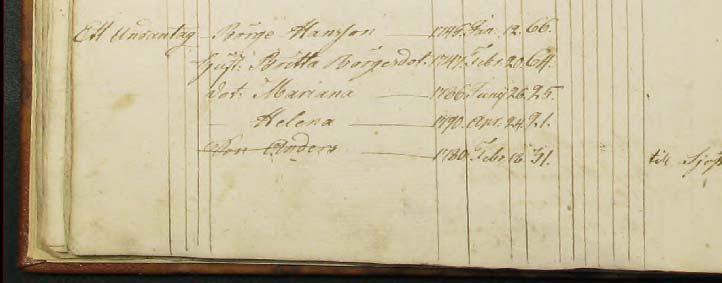 Ett Undantag Börge Hansson 1745. Jan. 12. 66.
Hust. Britta Börgesdot. 1747. Febr. 20. 64.
dot. Mariana 1786. Juny 26. 25.
- Helena 1790. Apr. 24. 21.
Son Anders 1780. Febr. 18. 31. till